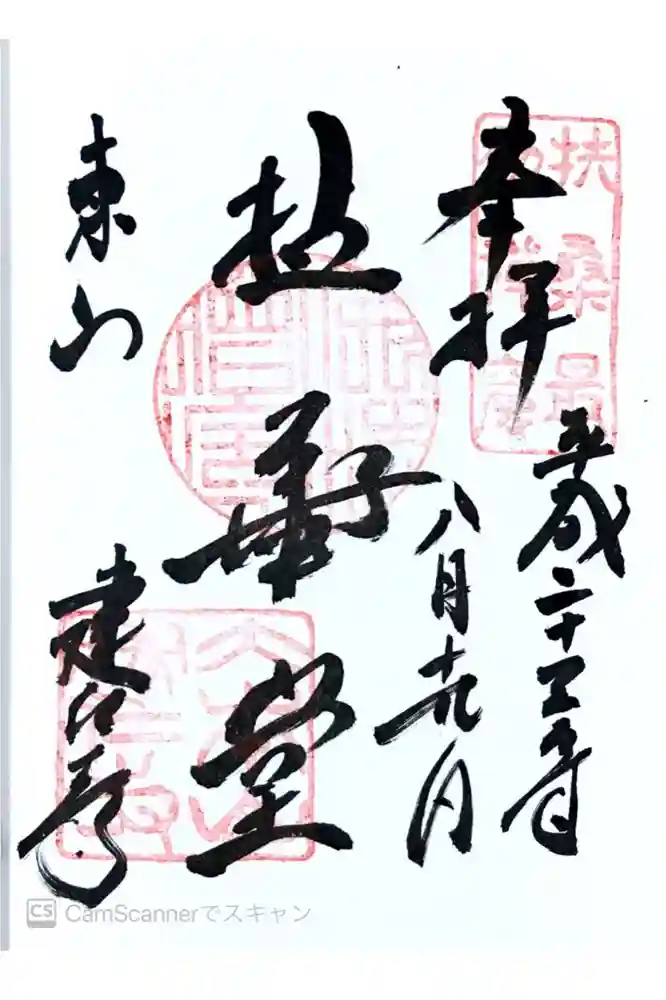 奉拝
平成二十三年
八月十九日
拈華堂
東山
建仁寺
扶桑最
CamScannerでスキャン